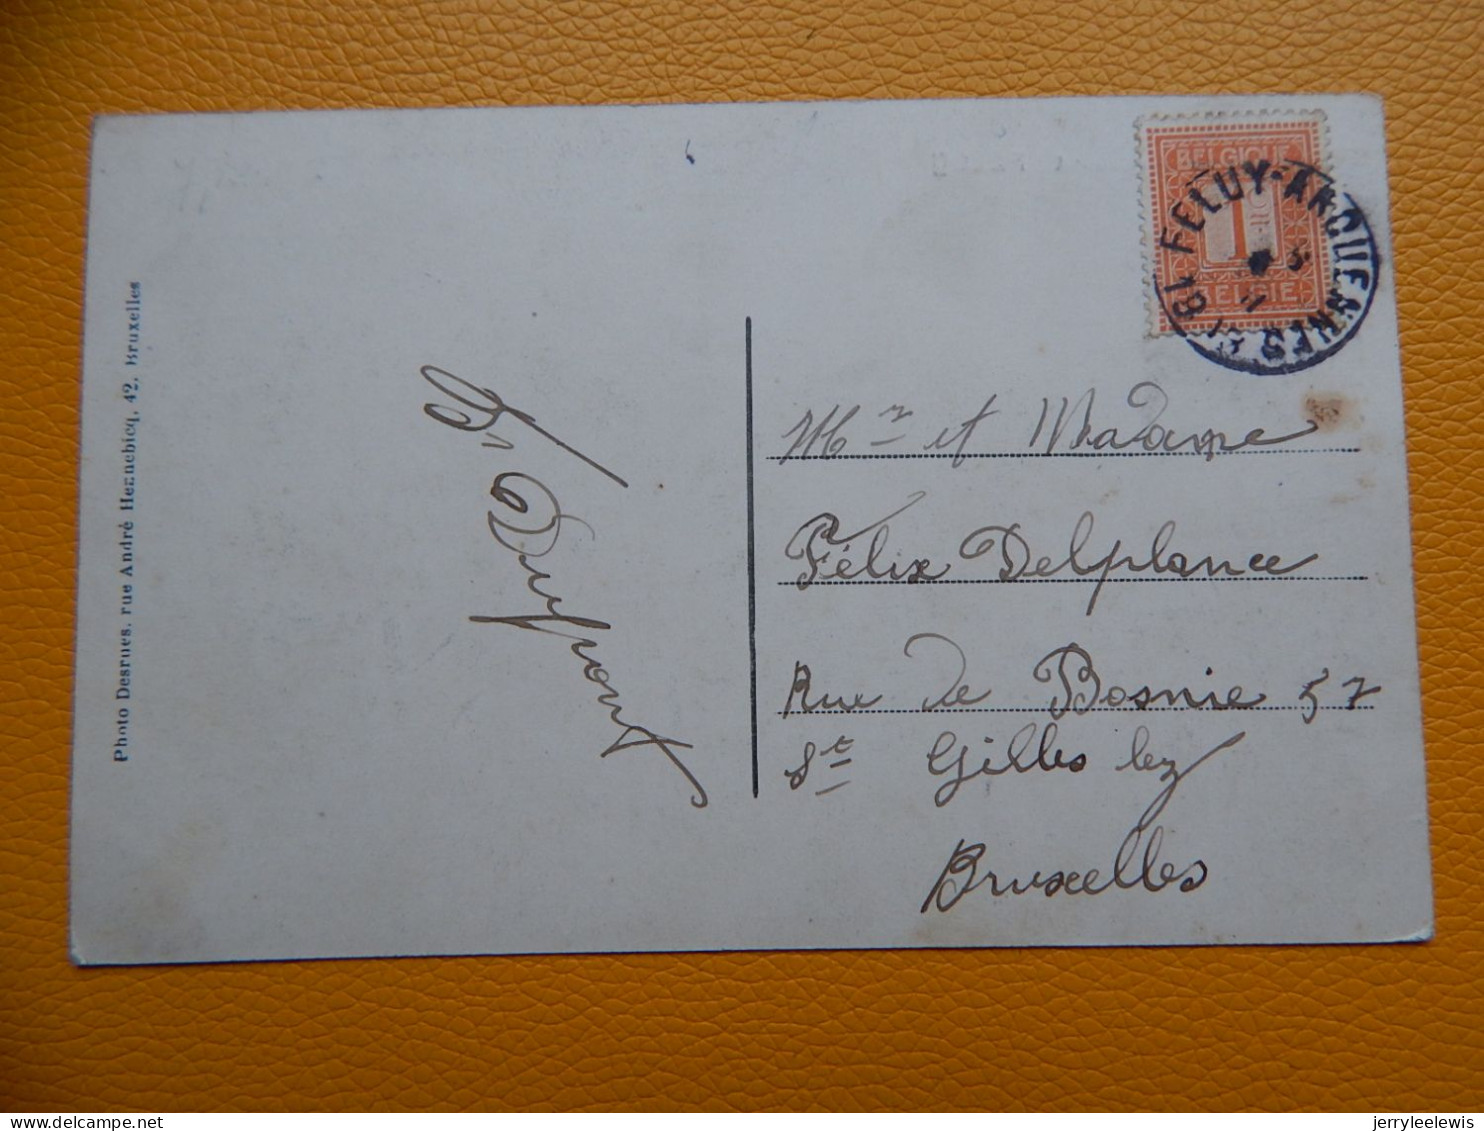 Photo Desrues, rue André Hennebicq, 42, Bruxelles
Dupont
BELGIQUE
1
BELGIE
FELUY-ARQUENNES
Mr et Madame
Félix Delplance
Rue de Bosnie 57
St Gilles lez
Bruxelles
jerryleelewis